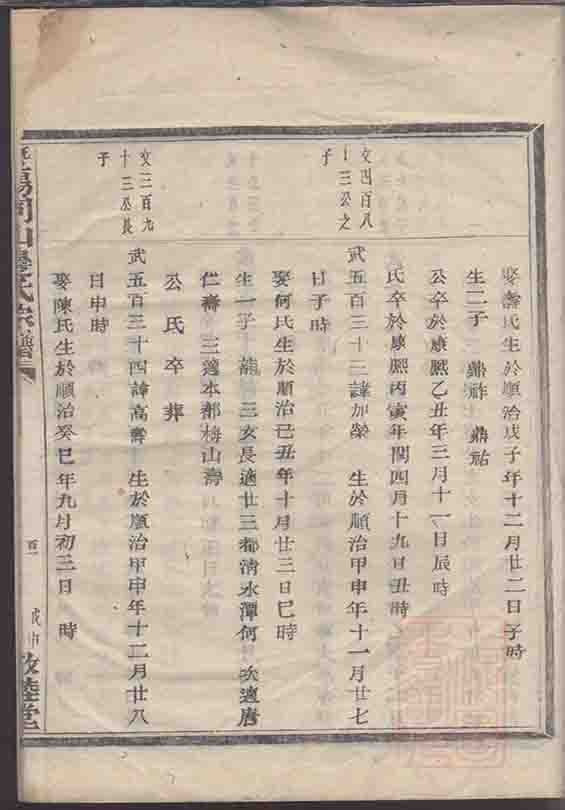 娶壽氏生於順治戊子年十二月廿二日子時
生二子　鼎祚　鼎祐
公卒於康熙乙丑年三月十一日辰時
氏卒於康熙丙寅年閏四月十九日丑時
文四百八十三公之子
武五百三十三諱加榮　生於順治甲申年十一月廿七
日子時
娶何氏生於順治己丑年十月廿三日巳時
生一子　三女長適廿三都清水潭何　次適唐
仁齋　三適本都梅山壽
公氏卒葬
文三百九十三公長子
武五百三十四諱高壽　生於順治甲申年十二月廿八
日申時
娶陳氏生於順治癸巳年九月初三日　時
氏宗譜
百一
戊申
敦睦堂